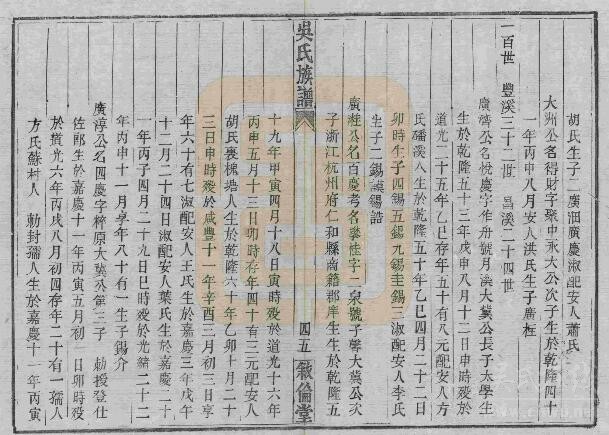 胡氏生子二廣沺廣慶淑配安人蕭氏
大洲公名得財字聚中永大公次子生於乾隆四十
一年丙申八月安人洪氏生子廣框
一百世 豐溪三十二世 昌溪二十四世
廣濟公名悅慶字作舟號月溪大冀公長子太學生
生於乾隆五十三年戊申八月十二日申時歿於
道光二十五年乙巳存年五十有八元配安人方
氏磻溪人生於乾隆五十年乙巳四月二十二日
卯時生子四錫五錫九錫圭錫三淑配安人李氏
生子二錫謨錫誥
廣㴖公名百慶考名攀桂字二泉號子馨大冀公次
子浙江杭州府仁和縣商籍郡庠生生於乾隆五
吳氏族譜
四五 敘倫堂
十九年甲寅四月十八日寅時歿於道光十六年
丙申五月十三日卯時存年四十有三元配安人
胡氏裏槐塘人生於乾隆六十年乙卯十月二十
三日申時歿於咸豐十一年辛酉三月初三日享
年六十有七淑配安人王氏生於嘉慶三年戊午
十二月二十四日淑配安人葉氏生於嘉慶二十
一年丙子四月二十九日巳時歿於光緒二十二
年丙申十一月享年八十有一生子錫介
廣淳公名四慶字梓原大冀公第三子 勅授登仕
佐郎生於嘉慶十一年丙寅五月初一日卯時歿
於道光六年丙戌八月初四存年二十有一孺人
方氏蘇村人 勅封孺人生於嘉慶十一年丙寅